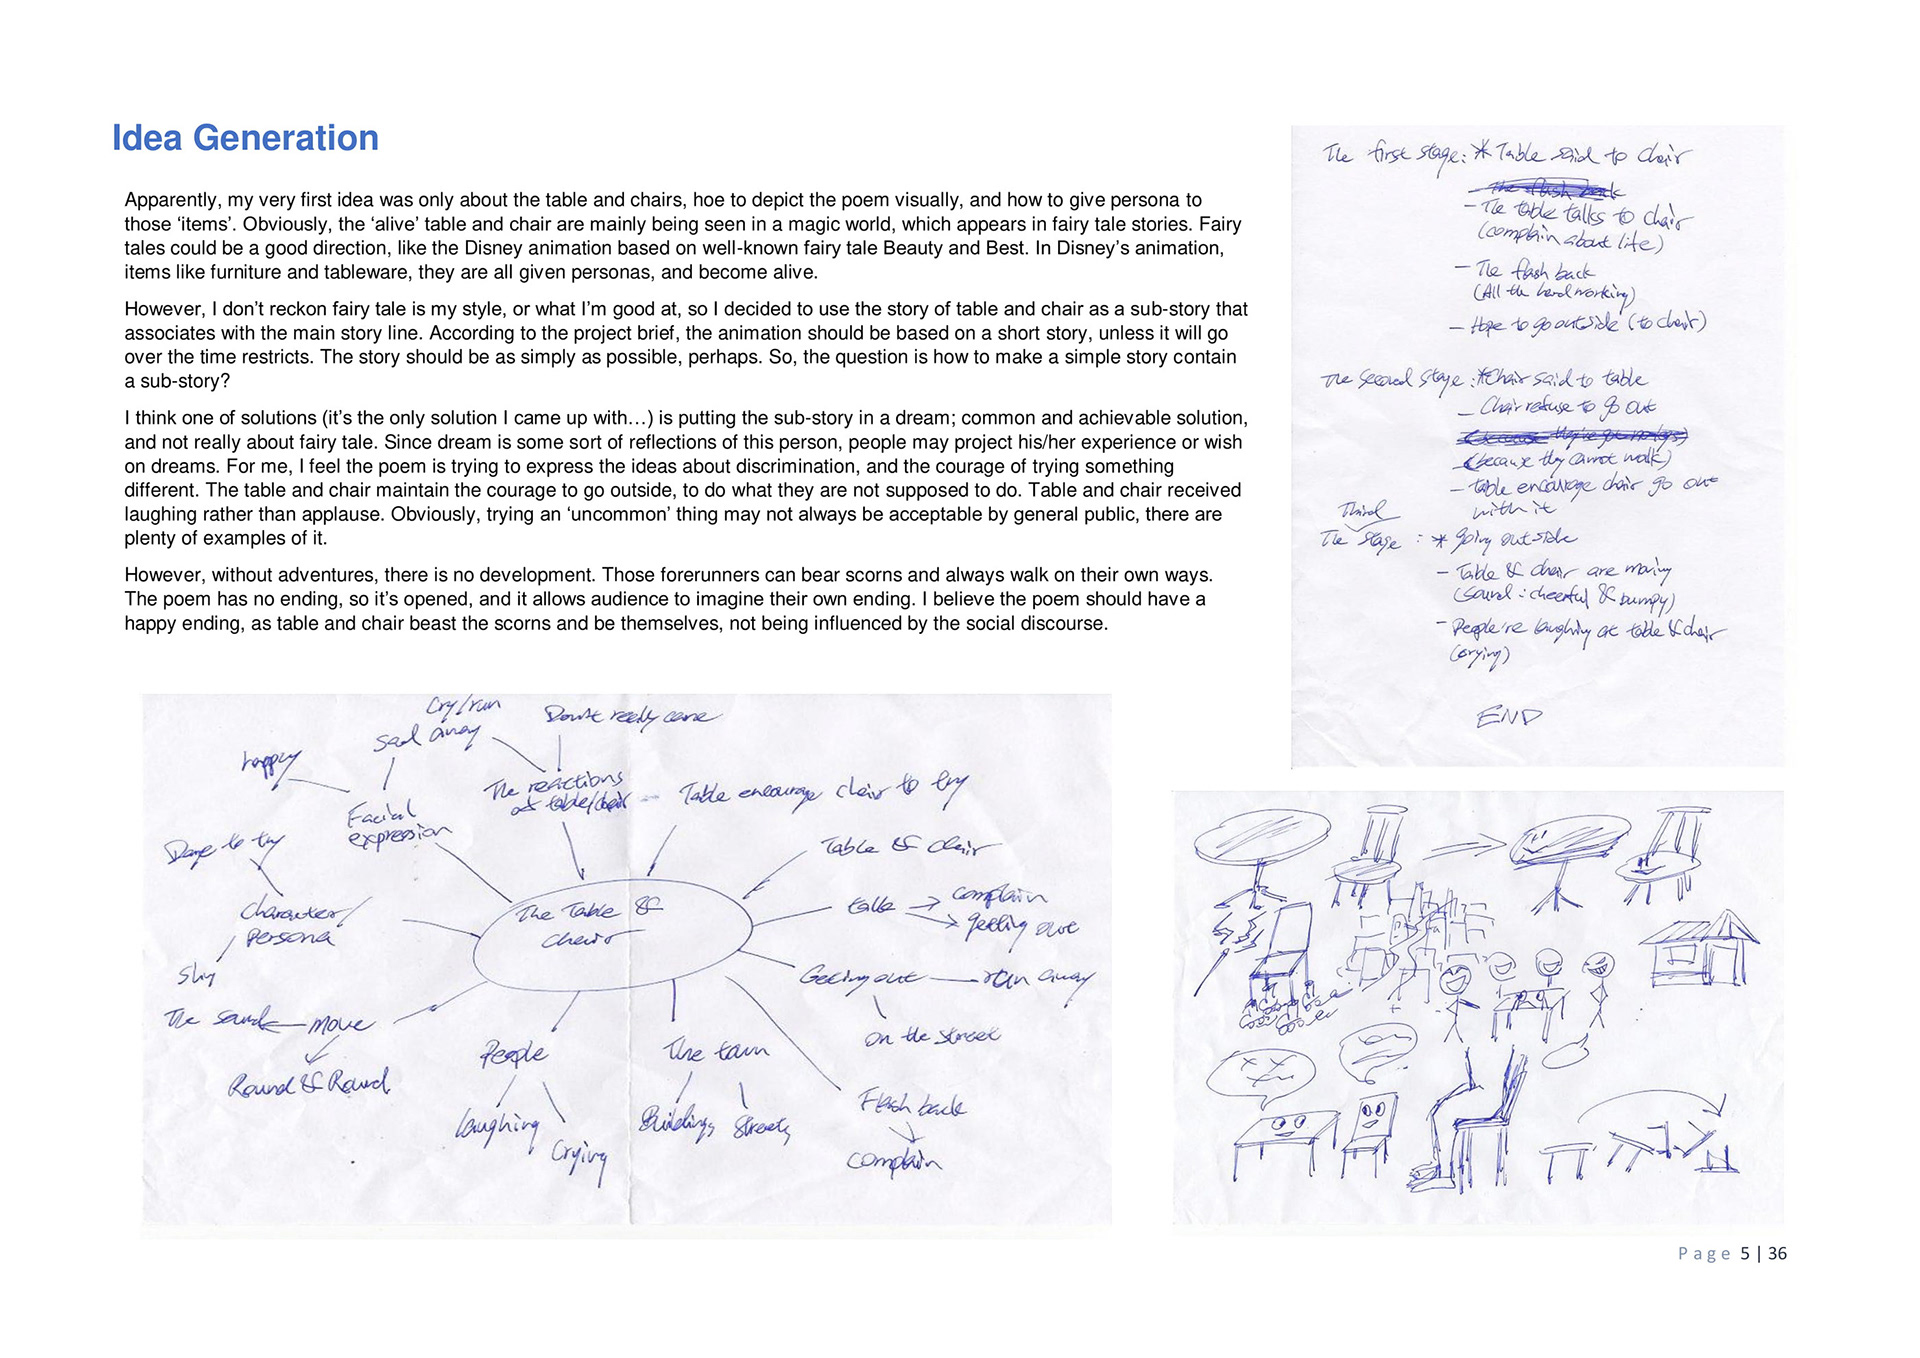 Idea Generation
Apparently, my very first idea was only about the table and chairs, hoe to depict the poem visually, and how to give persona to
those ‘items’. Obviously, the ‘alive’ table and chair are mainly being seen in a magic world, which appears in fairy tale stories. Fairy
tales could be a good direction, like the Disney animation based on well-known fairy tale Beauty and Best. In Disney’s animation,
items like furniture and tableware, they are all given personas, and become alive.
However, I don’t reckon fairy tale is my style, or what I’m good at, so I decided to use the story of table and chair as a sub-story that
associates with the main story line. According to the project brief, the animation should be based on a short story, unless it will go
over the time restricts. The story should be as simply as possible, perhaps. So, the question is how to make a simple story contain
a sub-story?
I think one of solutions (it’s the only solution I came up with…) is putting the sub-story in a dream; common and achievable solution,
and not really about fairy tale. Since dream is some sort of reflections of this person, people may project his/her experience or wish
on dreams. For me, I feel the poem is trying to express the ideas about discrimination, and the courage of trying something
different. The table and chair maintain the courage to go outside, to do what they are not supposed to do. Table and chair received
laughing rather than applause. Obviously, trying an ‘uncommon’ thing may not always be acceptable by general public, there are
plenty of examples of it.
However, without adventures, there is no development. Those forerunners can bear scorns and always walk on their own ways.
The poem has no ending, so it’s opened, and it allows audience to imagine their own ending. I believe the poem should have a
happy ending, as table and chair beast the scorns and be themselves, not being influenced by the social discourse.
The first stage: * Table said to chair
- The table talks to chair
(complain about life)
- The flash back
(All the hard working)
- Hope to go outside (to chair)
The second stage: * Chair said to table
- Chair refuse to go out
(because they cannot walk)
- table encourage chair go out
with it
Third
The stage : * going outside
- Table & chair are moving
(sound : cheerful & bumpy)
- People're laughing at table & chair
(crying)
END
Cry/run
away
sad
Don't really care
happy
The reactions
of table/chair
Table encourage chair to try
Facial
expression
Dare to try
Table & chair
The Table &
chair
Character/
Persona
talk → complain
→ getting out
shy
Getting out — run away
on the street
The sound ← move
Round & Round
People
laughing
Crying
The town
Buildings
Streets
Flash back
complain
Page 5 | 36